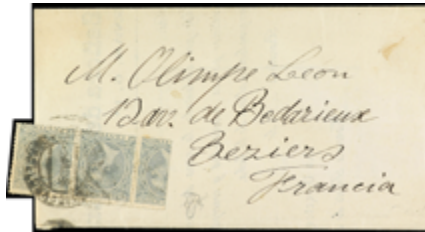 M. Olimpe Leon
13 av. de Bedarieux
Beziers
Francia